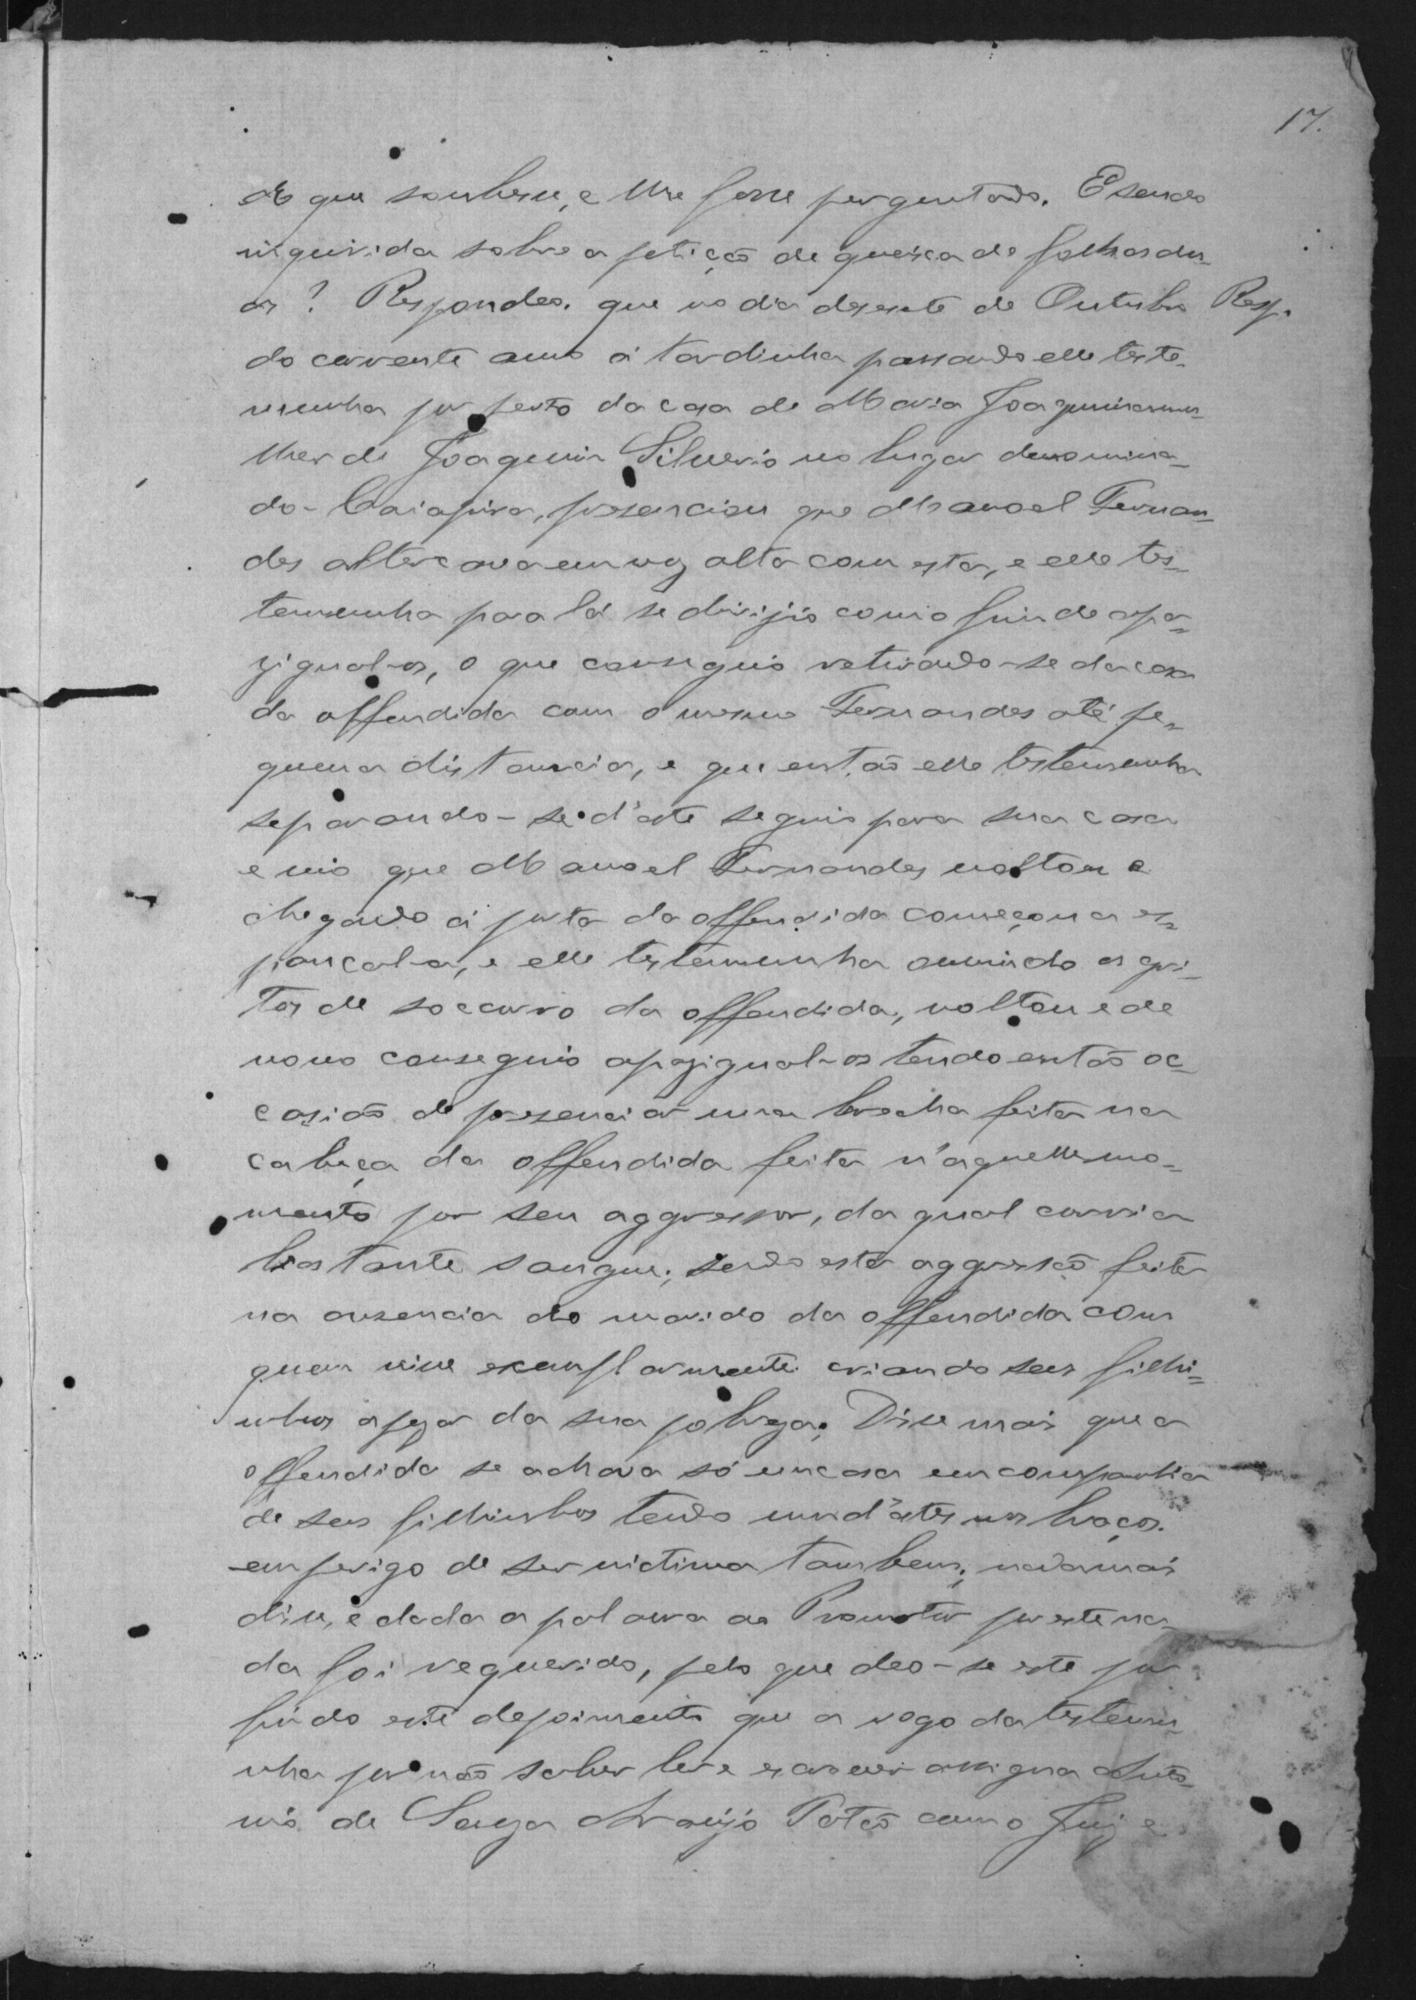 17.
do que soubesse, e lhe fosse perguntado. E sendo
inquirida sobre a petição de queixa de folhas du-
as? Respondeo. que no dia desesete de Outubro Resp.
do corrente anno á tardinha passando elle teste-
munha por perto da casa de Maria Joaquina mu-
lher de Joaquim Silverio no lugar denomina-
do - Caiapira, presenciou que Manoel Fernan-
des altercava em voz alta com esta, e elle tes-
temunha para lá se dirijio com o fim de apa-
zigual-os, o que conseguio retirando-se da casa
da offendida com o mesmo Fernandes até pe-
quena distancia, e que então elle testemunha
separando-se d'este seguio para sua casa
e vio que Manoel Fernandes voltou e
chegando á porta da offendida começou a es-
pancal-a, e elle testemunha ouvindo os gri-
tos de soccorro da offendida, voltou e de
novo conseguio apazigual-os tendo então oc-
casião de presenciar uma brecha feita na
cabeça da offendida feita n'aquelle mo-
mento por seu aggressor, da qual corria
bastante sangue; sendo esta aggressão feita
na ausencia do marido da offendida com
quem vive exemplarmente criando seus filhi-
nhos apezar da sua pobreza; Disse mais que a
offendida se achava só em casa em companhia
de seus filhinhos tendo um d'estes nos braços.
em perigo de ser victima tambem; nada mais
disse, e dada a palavra ao Promotor por este na-
da foi requerido, pelo que deo-se este por
findo este depoimento que a rogo da testemu-
nha por não saber ler e escrever assigna Anto-
nio de Souza Araujo Totó como Juiz e